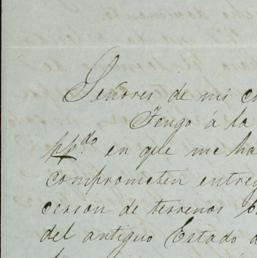 Señores de mi c
Tengo á la
ppdo en que me ha
comprometen entreg
cesion de terrenos
del antiguo Estado d